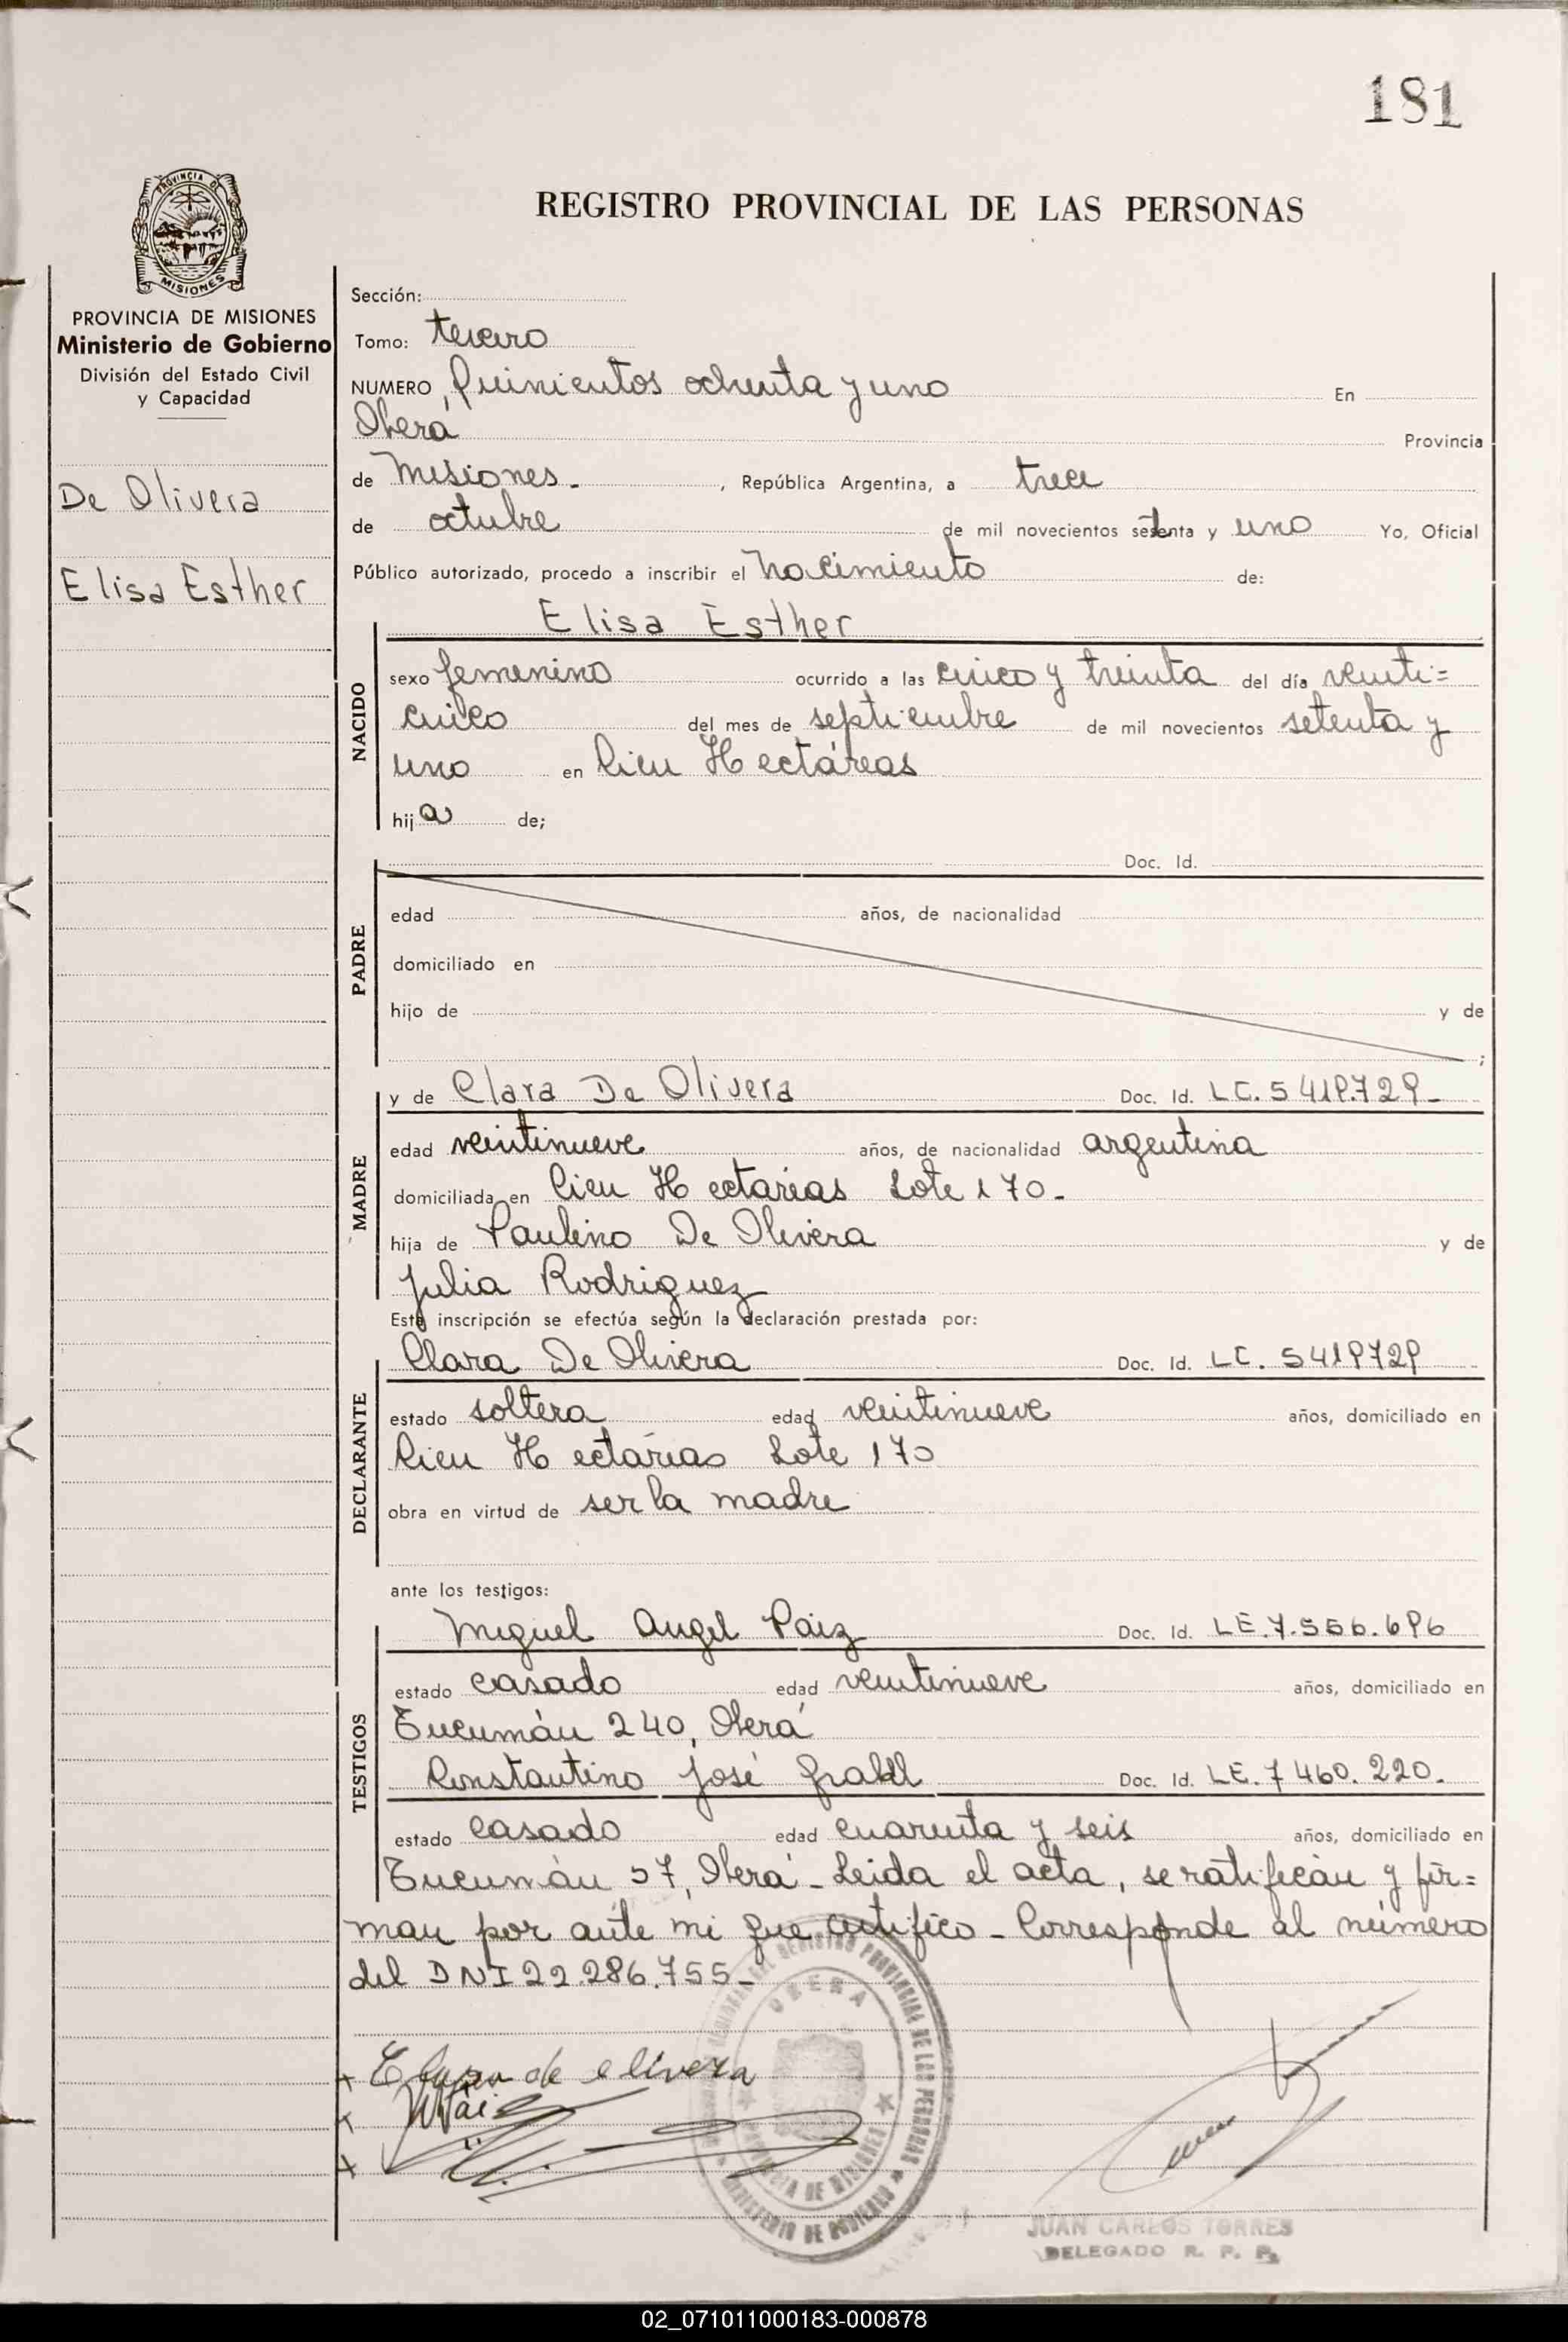 181
PROVINCIA DE
MISIONES
REGISTRO PROVINCIAL DE LAS PERSONAS
PROVINCIA DE MISIONES
Ministerio de Gobierno
División del Estado Civil
y Capacidad
De Olivera
Elisa Esther
Sección:
Tomo: tercero
NUMERO, Quinientos ochenta y uno En
Oberá Provincia
de Misiones. , República Argentina, a trece
de octubre de mil novecientos setenta y uno Yo, Oficial
Público autorizado, procedo a inscribir el nacimiento de:
NACIDO
Elisa Esther
sexo femenino ocurrido a las cinco y treinta del día veinti=
cinco del mes de septiembre de mil novecientos setenta y
uno en Cien Hectáreas
hija de;
PADRE
Doc. Id.
edad años, de nacionalidad
domiciliado en
hijo de y de
;
MADRE
y de Clara De Olivera Doc. Id. LC. 5419.729-
edad veintinueve años, de nacionalidad argentina
domiciliada en Cien Hectáreas Lote 170-
hija de Paulino De Olivera y de
Julia Rodriguez
Esta inscripción se efectúa según la declaración prestada por:
DECLARANTE
Clara De Olivera Doc. Id. LC. 5419729
estado soltera edad veintinueve años, domiciliado en
Cien Hectáreas Lote 170
obra en virtud de ser la madre
ante los testigos:
TESTIGOS
Miguel Angel Paiz Doc. Id. LE.7.556.696
estado casado edad veintinueve años, domiciliado en
Tucumán 240, Oberá
Constantino José Doc. Id. LE. 7460.220.
estado casado edad cuarenta y seis años, domiciliado en
Tucumán 57, Oberá - Leida el acta, se ratifican y fir=
man por ante mi que certifico - Corresponde al número
del DNI 22.286.755-
de olivera
OBERA
PROVINCIA DE MISIONES
MINISTERIO DE GOBIERNO
REGISTRO PROVINCIAL DE LAS PERSONAS
JUAN CARLOS TORRES
DELEGADO R. P. P.
02_071011000183-000878